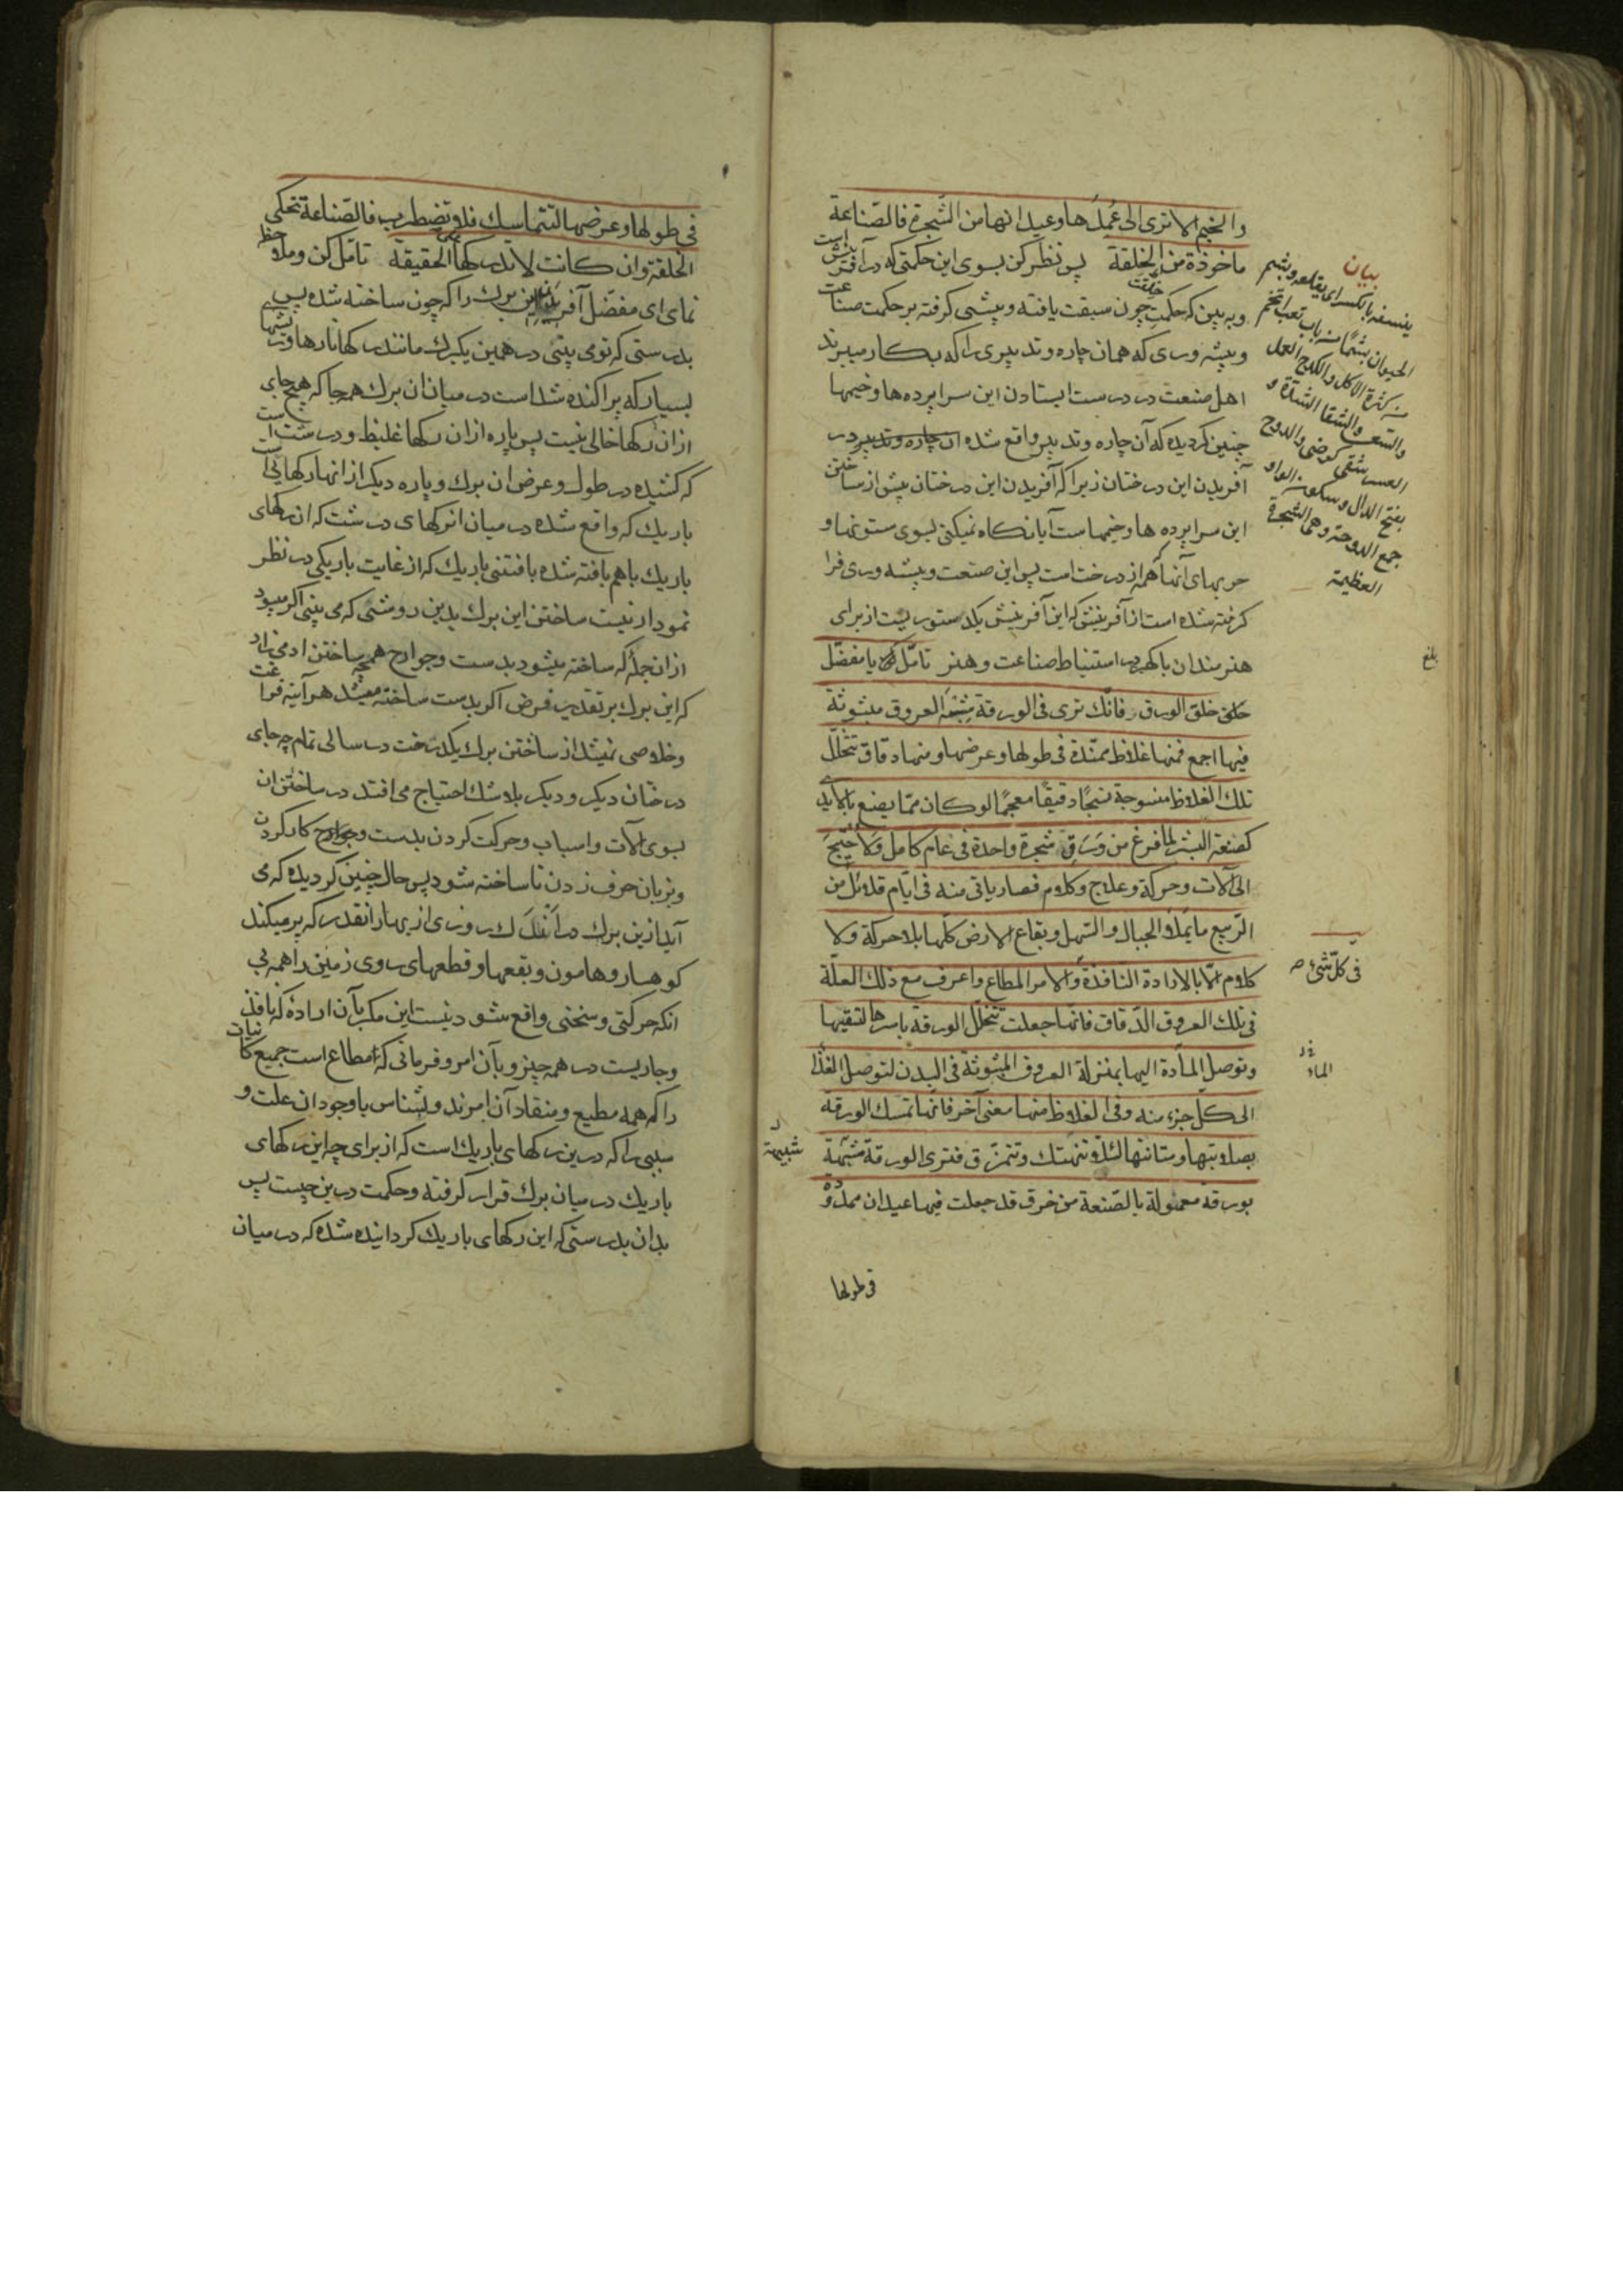 والخيم الا ترى الى عمدها وعيدانها من الشجرة فالصناعة
ماخوذة من الخلقة پس نظر كن بسوى اين حكمتى كه در آفرينش است
وبه بين كه حكمت خلقت چون سبقت يافته و پيشى گرفته بر حكمت صناعت
و پيشه ورى كه همان چاره و تدبيرى را كه بكار ميبرند
اهل صنعت در درست ايستادن اين سرا پرده ها و خيمها
چنين گرديده كه آن چاره و تدبير واقع شده ان چاره و تدبير در
آفريدن اين درختان زيرا كه آفريدن اين درختان پيش از ساختن
اين سرا پرده ها و خيمها ست آيا نگاه نميكنى بسوى ستونها و
چوبهاى آنها كه از درخت است پس اين صنعت و پيشه ورى فرا
گرفته شده است از آفرينش كه اين آفرينش يكدستوريست از براى
هنرمندان با گهر در استنباط صناعت و هنر تامّل يا مفضّل
خلق الورق فانّك ترى فى الورقة شبه العروق مبثوثة
فيها اجمع فمنها غلاظ ممتدّة فى طولها وعرضها ومنها دقاق تتخلّل
تلك الغلاظ منسوجة نسجًا دقيقًا معجمًا لو كان ممّا يصنع بالايدى
كصنعة البشر لما فرغ من ورق شجرة واحدة فى عام كامل ولاحتيج
الى آلات وحركة وعلاج وكلام فصار ياتى منه فى ايّام قلائل من
الرّبيع ما يملأ الجبال والسّهل وبقاع الارض كلّها بلا حركة ولا
كلام الّا بالارادة النّافذة والامر المطاع واعرف مع ذلك العلّة
فى تلك العروق الدّقاق فانّها جعلت تتخلّل الورقة باسرها لتسقيها
وتوصل المادّة اليها بمنزلة العروق المبثوثة فى البدن لتوصل الغذا
الى كلّ جزء منه وفى الغلاظ منها معنى آخر فانّها تمسك الورقة
بصلابتها ومتانتها لئلّا تنهتك وتتمزّق فترى الورقة مشبّهة
بورقة معمولة بالصّنعة من خرق قد جعلت فيها عيدان ممدودة
فى طولها
بيان
ينسفه بالكسر اى يقلعه وبشم
الحيوان بشمًا من باب تعب اتخم
من كثرة الاكل والكدح العمل
والسّعى والشقا الشدّة و
العسر شقى كرضى والدوح
بفتح الدال وسكون الواو
جمع الدوحة وهى الشجرة
العظيمة
بلغ
فى كلّ شئ صـ
الماء
شبيهة
فى طولها وعرضها لتتماسك فلا تضطرب فالصّناعة تحكى
الخلقة وان كانت لا تدركها على الحقيقة تامّل كن و ملاحظه
نماى اى مفضّل آفريدن اين برك را كه چون ساخته شده پس
بدرستى كه تو مى بينى در همين يكبرك مانند رگها تارها و ريشها
بسيار كه پراكنده شده است در ميان ان برك همه جا كه هيچ جاى
ازان رگها خالى نيست پس پاره ازان رگها غليظ و درشت است
كه كشيده در طول و عرض ان برك و پاره ديگر از انها رگهايى است
باريك كه واقع شده در ميان ان رگهاى درشت كه ان رگهاى
باريك با هم بافته شده بافتنى باريك كه از غايت باريكى در نظر
نمودار نيست ساختن اين برك بدين روشنى كه مى بينى اگر ميبود
ازان جمله كه ساخته ميشود بدست و جوارح همچه ساختن ادمى زاد
كه اين برك بر تقدير فرض اگر بدست ساخته ميشد هر آينه فراغت
و خلاصى نميشد از ساختن برك يكدرخت در سالى تمام چه جاى
درختان ديگر و ديگر بلاشك احتياج مى افتد در ساختن ان
بسوى آلات و اسباب و حركت كردن بدست و جوارح كار كردن
و بزبان حرف زدن تا ساخته شود پس حال چنين گرديده كه مى
آيد ازين برك در اندك روزى از بهار انقدر كه پر ميكند
كوهسار و هامون و بقعها و قطعهاى روى زمين را همه بى
انكه حركتى و سخنى واقع شود نيست اين مگر بآن ارادۀ كه نافذ
و جاريست در همه چيز و بآن امر و فرمانى كه مطاع است جميع كائنات
را كه همه مطيع و منقاد آن امرند و بشناس با وجود ان علت و
سببى را كه درين رگهاى باريك است كه از براى چه اين رگهاى
باريك در ميان برك قرار گرفته و حكمت درين چيست پس
بدان بدرستى كه اين رگهاى باريك گردانيده شده كه در ميان